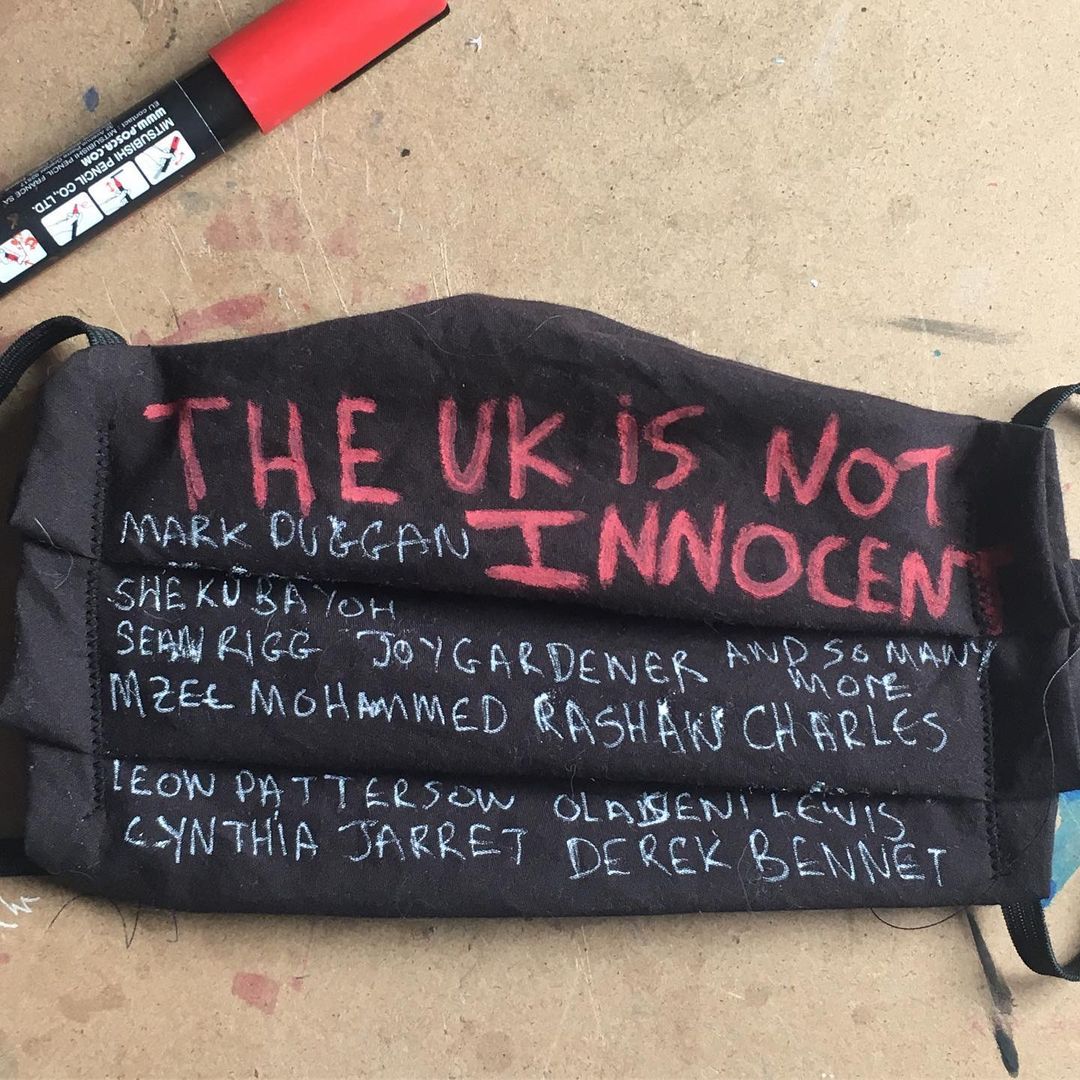 MITSUBISHI PENCIL CO., LTD.
www.posca.com
EU contact : MITSUBISHI PENCIL FRANCE SA
THE UK iS NOT
INNOCENT
MARK DUGGAN
SHEKU BAYOH
SEAN RIGG JOY GARDENER AND SO MANY
MORE
MZEE MOHAMMED RASHAN CHARLES
LEON PATTERSON OLASENI LEWIS
CYNTHiA JARRET DEREK BENNET